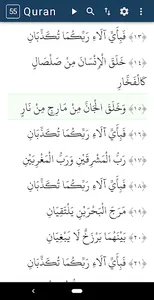 55 Quran
﴿١٣﴾ فَبِأَيِّ آلَاءِ رَبِّكُمَا تُكَذِّبَانِ
﴿١٤﴾ خَلَقَ الْإِنْسَانَ مِنْ صَلْصَالٍ
كَالْفَخَّارِ
﴿١٥﴾ وَخَلَقَ الْجَانَّ مِنْ مَارِجٍ مِنْ نَارٍ
﴿١٦﴾ فَبِأَيِّ آلَاءِ رَبِّكُمَا تُكَذِّبَانِ
﴿١٧﴾ رَبُّ الْمَشْرِقَيْنِ وَرَبُّ الْمَغْرِبَيْنِ
﴿١٨﴾ فَبِأَيِّ آلَاءِ رَبِّكُمَا تُكَذِّبَانِ
﴿١٩﴾ مَرَجَ الْبَحْرَيْنِ يَلْتَقِيَانِ
﴿٢٠﴾ بَيْنَهُمَا بَرْزَخٌ لَا يَبْغِيَانِ
﴿٢١﴾ فَبِأَيِّ آلَاءِ رَبِّكُمَا تُكَذِّبَانِ